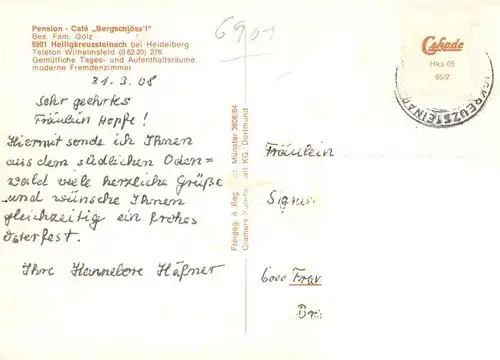 Pension - Café „Bergschlöss'l"
Bes. Fam. Gölz
6901 Heiligkreuzsteinach bei Heidelberg
Telefon Wilhelmsfeld (0 62 20) 276
Gemütliche Tages- und Aufenthaltsräume,
moderne Fremdenzimmer
6901
Cekade
Hks 05
65/2
31.3.68
Sehr geehrtes
Fräulein Hopfe!
Hiermit sende ich Ihnen
aus dem südlichen Oden=
wald viele herzliche Grüße
und wünsche Ihnen
gleichzeitig ein frohes
Osterfest.
Ihre Hannelore Häfner
Freigeg. d. Reg. Münster 3808/64
Cramers KG, Dortmund
Fräulein
6000